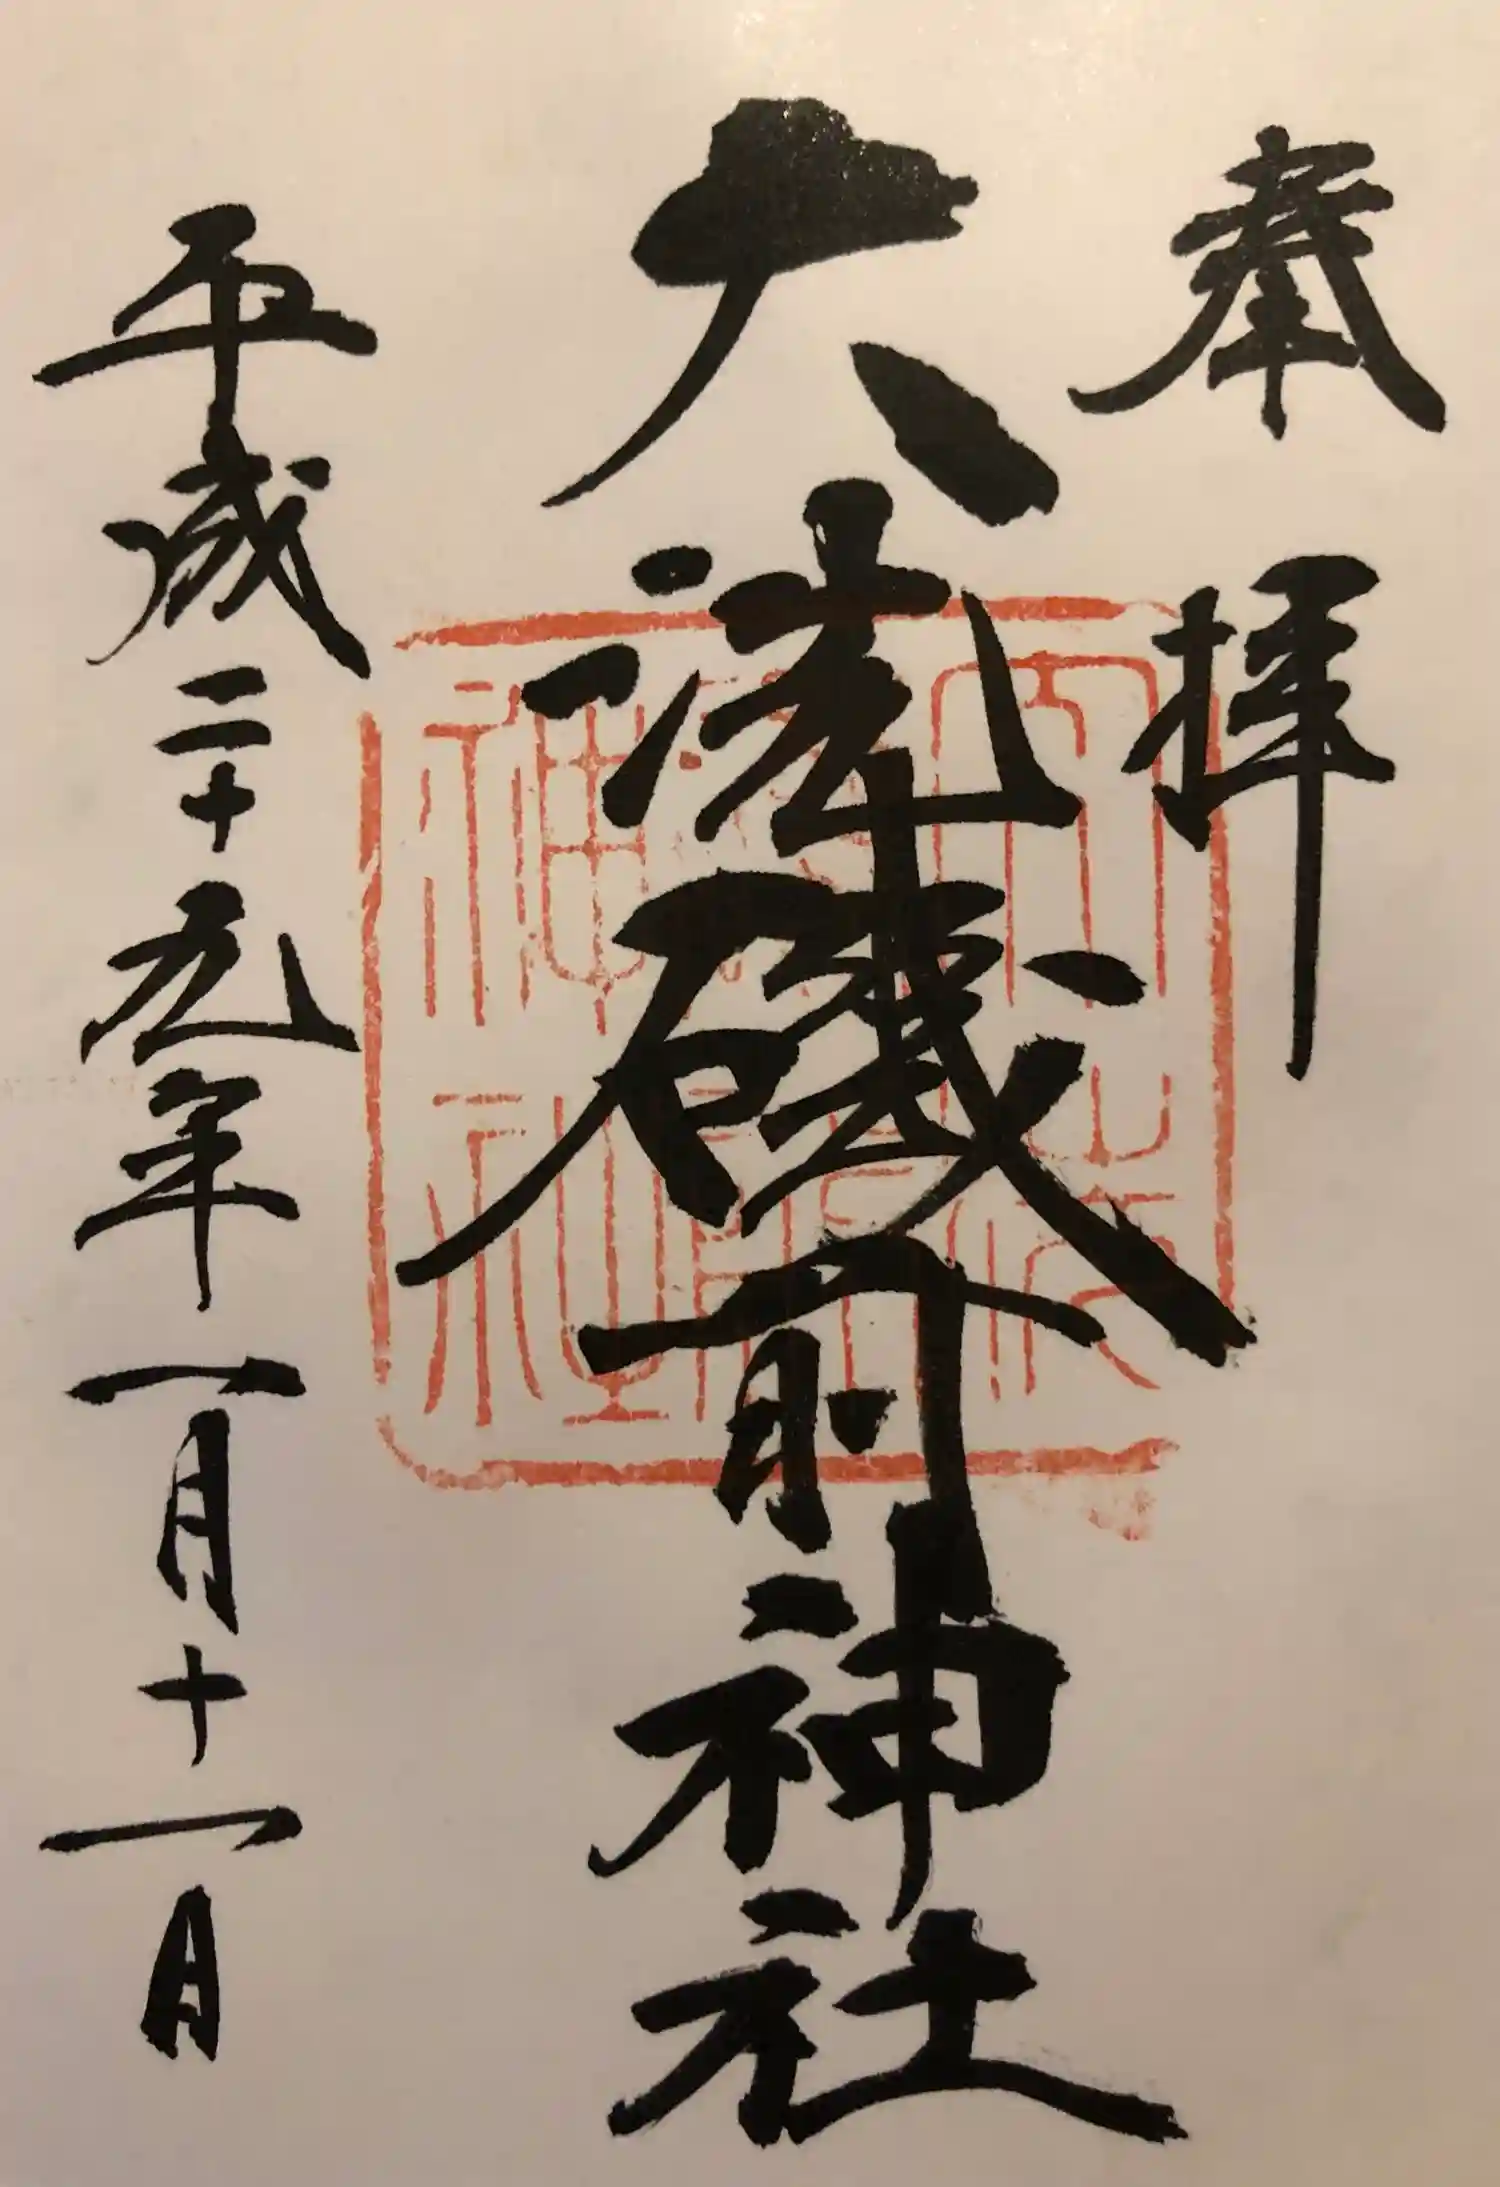 奉拝
大洗磯前神社
平成二十九年一月十一日
神社